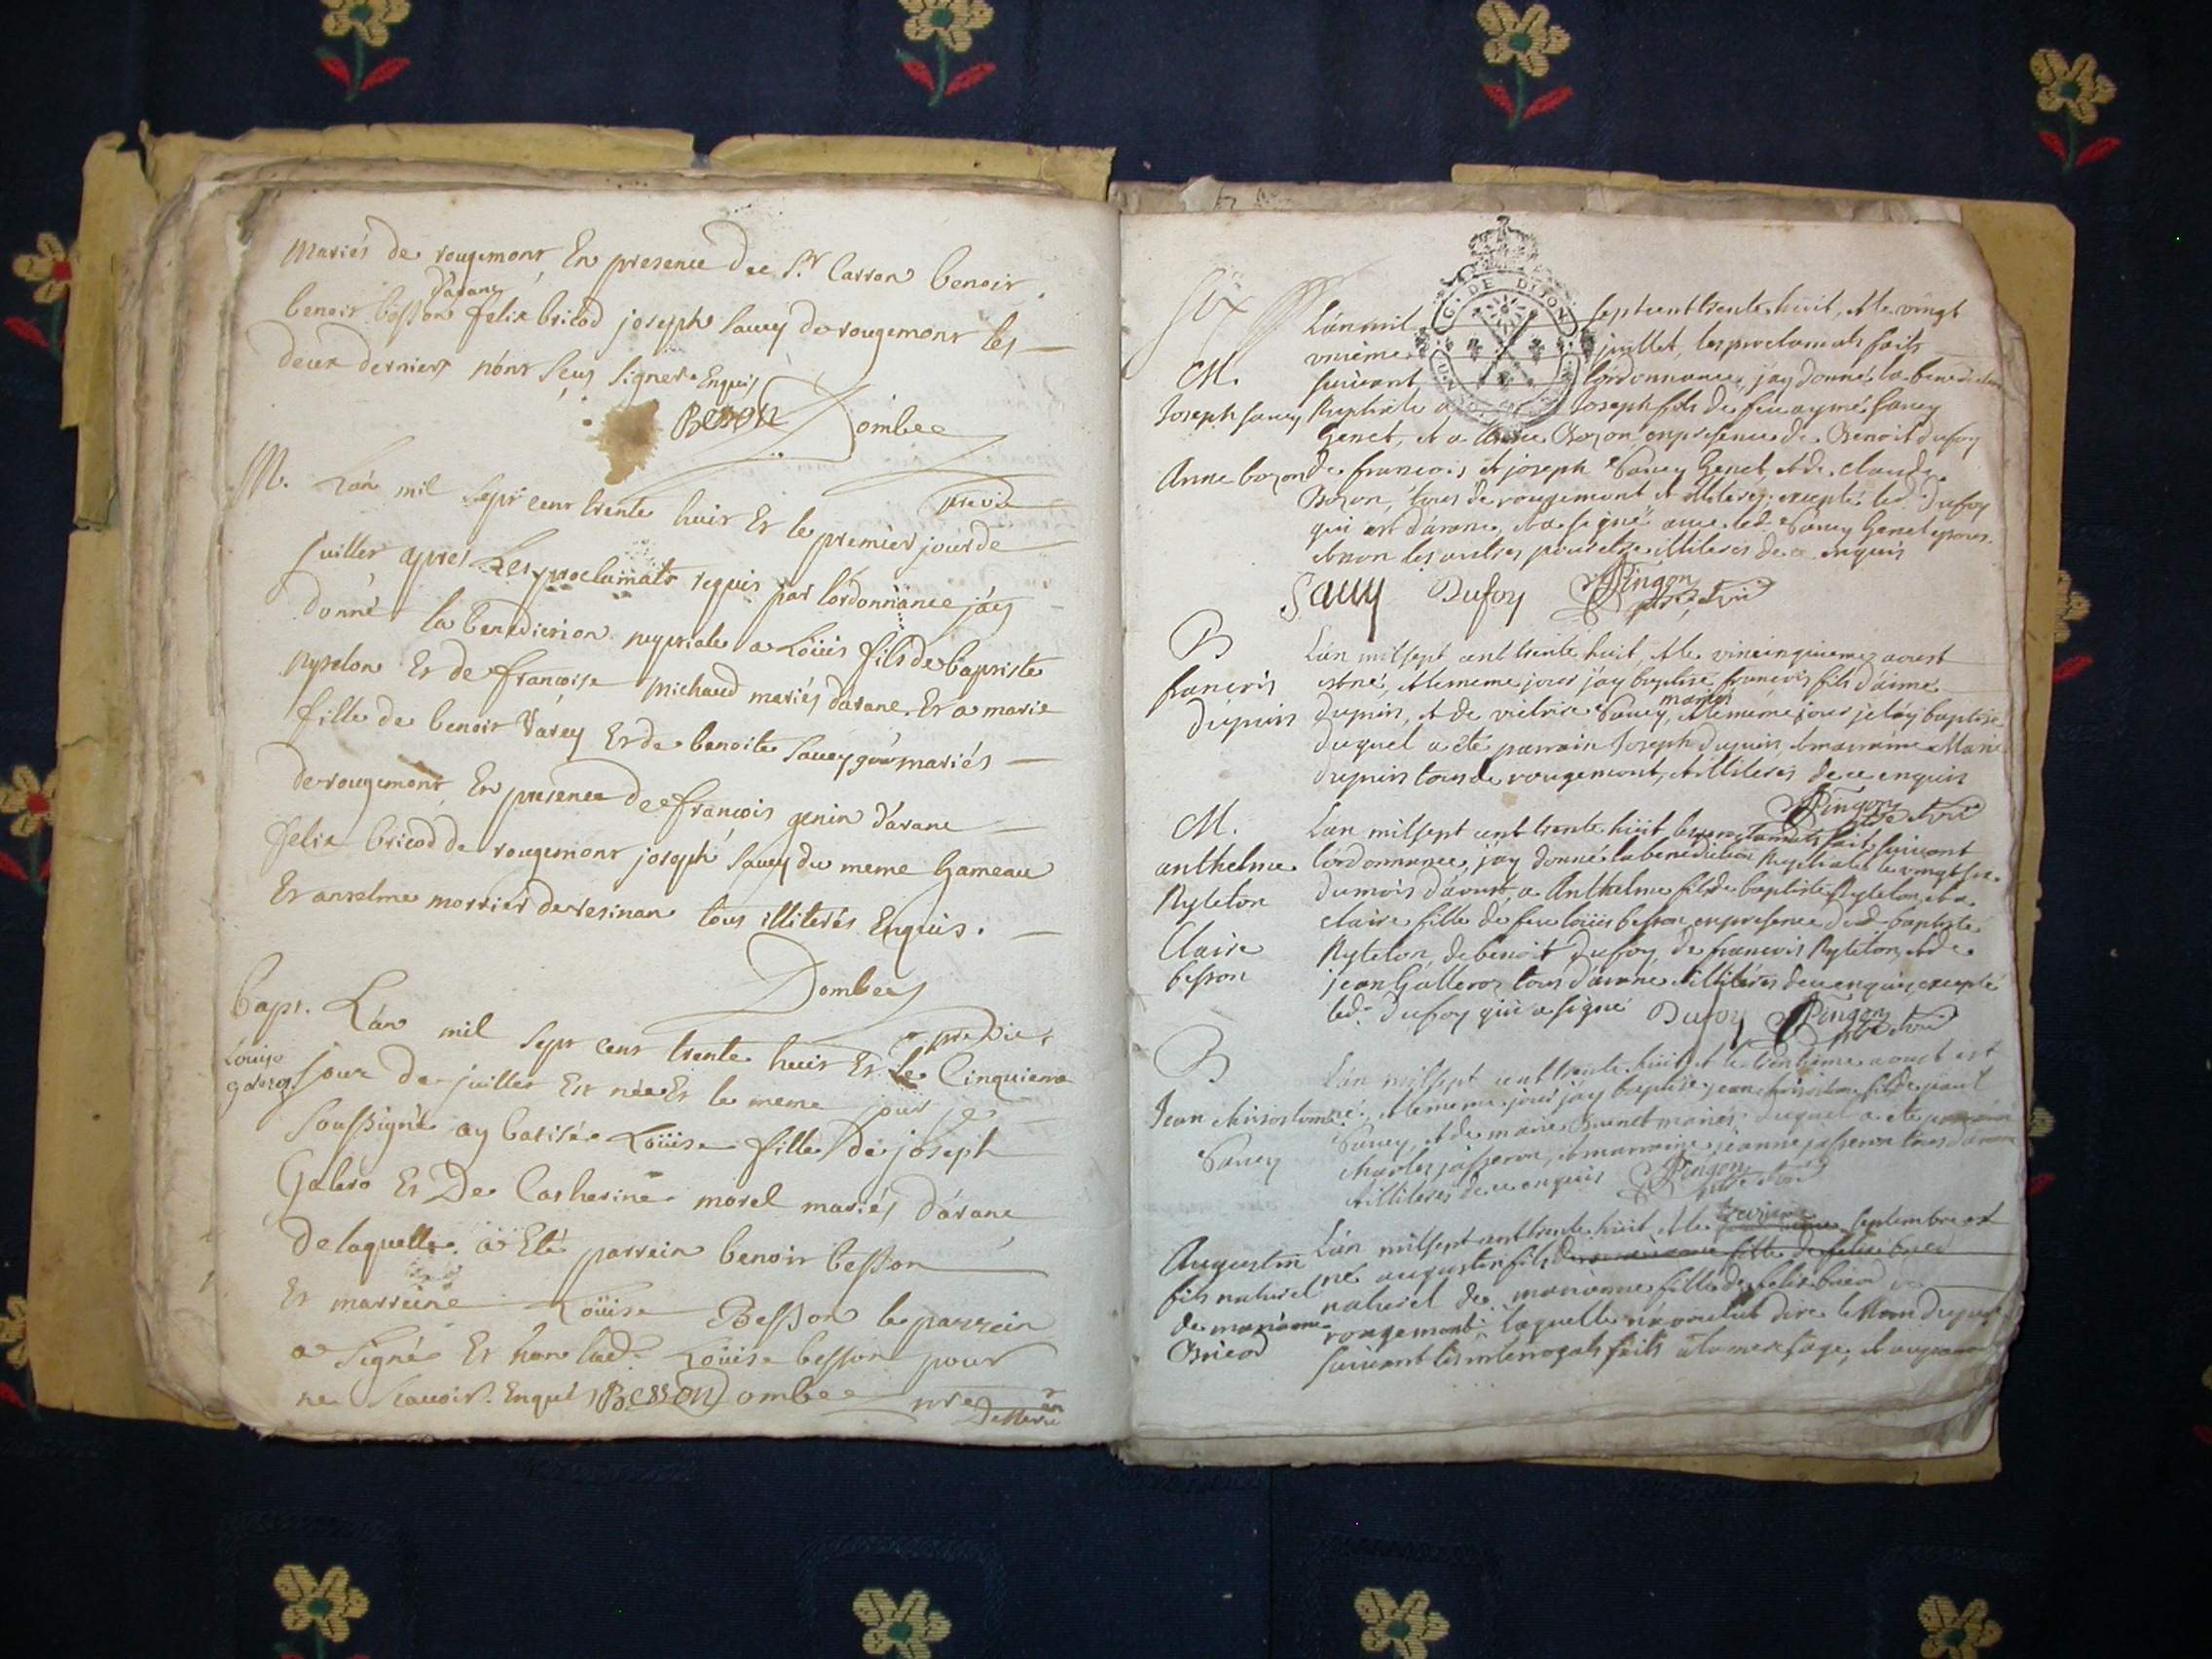 Mariés de rougemont En presence de Sr Carron benoit
benoit besson d'arane felix bricod joseph Savey de rougemont les
deux derniers n'ont Seus Signer Enquis
Besson Dombee
M. L'an mil sept cent trente huit Et le premier jour de
Juillet apres Les proclamats requis par l'ordonnance j'ay
donné la benediction nuptiale a Loüis fils de baptiste
Ryteton Et de françoise michaud mariés d'arane Et a marie
fille de benoit Varey Et de benoite Savey mariés
de rougemont En presence de françois genin d'arane
felix bricod de rougemont joseph Savey du meme hameau
Et anselme morrier de resinan tous illiterés Enquis.
Dombee
bapt. L'an mil sept cent trente huit Et le Cinquieme
Louise
Jour de juillet Est née Et le meme jour je
Soussigné ay batisée Loüise fille de joseph
Galero Et De Catherine morel mariés d'arane
de laquelle a Eté parrein benoit besson
Et marreine Loüise Besson le parrein
a Signé Et non lad. Loüise besson pour
ne Scavoir. Enquis Besson Dombee
Six
G. DE DIJON
L'an mil septcent trente huit, et le vingt
unième juillet, les proclamats faits
M. suivant l'ordonnance, j'ay donné la benediction
Joseph Savey Nuptiale a Joseph fils de feu aymé Savey
Genet, et a Anne Bozon en presence de Benoit Dufoy
Anne bozon de francois et joseph Savey Genet, et de Claude
Bozon, tous de rougemont et illiteres, excepté led. Dufoy
qui est d'arane, et a signé avec led. Savey Genet epoux
et non les autres pour etre illiteres de ce enquis
Savey Dufoy Pingon
B L'an mil sept cent trente huit, et le vincinquieme aoust
francois est né, et le meme jour j'ay baptisé francois fils d'aimé
mariés
Dupuis Dupuis, et de victoire Savey, et le meme jour je l'ay baptisé
duquel a été parrain Joseph Dupuis et marraine Marie
Dupuis tous de rougemont, et illiteres de ce enquis
Pingon
M. L'an mil sept cent trente huit, les proclamats fait suivant
anthelme l'ordonnance, j'ay donné la benediction Nuptiale le vingt six
Ryteton du mois d'aoust a Anthelme fils de baptiste Ryteton, et a
Claire claire fille de feu loüis besson en presence dud. baptiste
besson Ryteton, de benoit Dufoy, de francois Ryteton, et de
jean Galleroz tous d'arane et illiteres de ce enquis, excepté
led. Dufoy qui a signé Dufoy Pingon
B L'an mil sept cent trente huit, et le trentieme aoust est
Jean chrisostome né, et le meme jour j'ay baptisé jean chrisostome fils de paul
Savey Savey, et de marie Brunet mariés, duquel a été parrain
charles jasseron, et marraine jeanne jasseron tous d'arane
et illiteres de ce enquis Pingon
Augustin L'an mil sept cent trente huit, et le septembre est
fils naturel né augustin fils fille de felix bricod
de marianne naturel de marianne fille de felix bricod
Bricod rougemont, laquelle n'a voulut dire le Nom du pere
suivant les interrogats faits a la mere sage, et auparavant